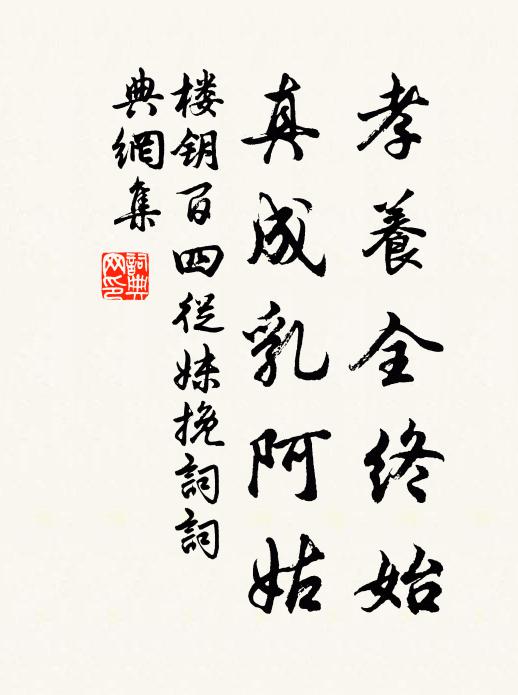 孝養全終始
真成乳阿姑
楼钥百四從妹挽詞詞
典網集
詞典网印